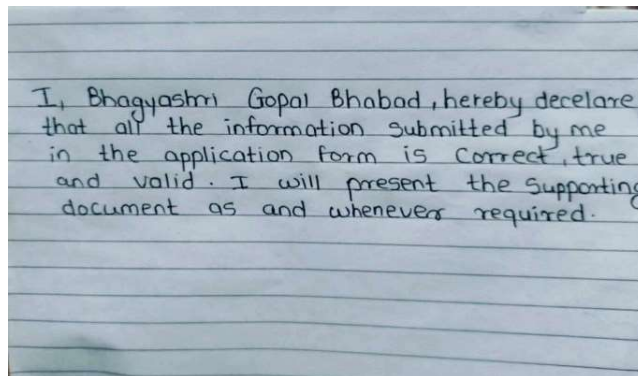 I, Bhagyashri Gopal Bhabad, hereby decelare
that all the information submitted by me
in the application form is correct, true
and valid. I will present the supporting
document as and whenever required.